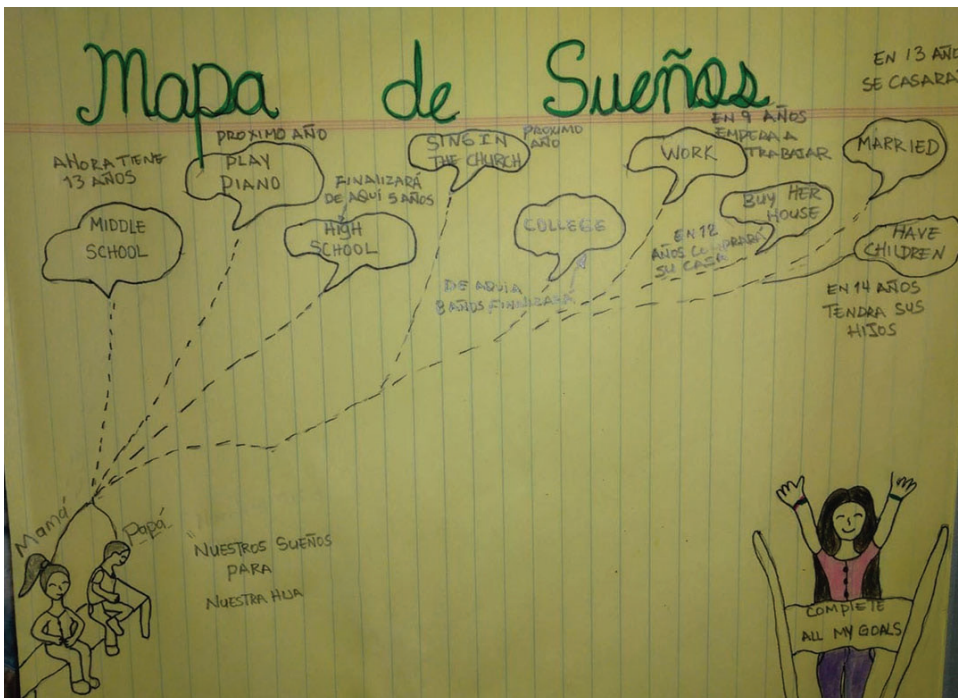 Mapa de Sueños
EN 13 AÑO
SE CASARA
AHORA TIENE
13 AÑOS
MIDDLE
SCHOOL
PROXIMO AÑO
PLAY
PIANO
FINALIZARÁ
DE AQUÍ 5 AÑOS
HIGH
SCHOOL
SING IN
THE CHURCH
PROXIMO
AÑO
COLLEGE
DE AQUI A
8 AÑOS FINALIZARÁ
EN 9 AÑOS
TRABAJAR
WORK
BUY HER
HOUSE
EN 12
AÑOS COMPRARÁ
SU CASA
MARRIED
HAVE
CHILDREN
EN 14 AÑOS
TENDRA SUS
HIJOS
Mamá
Papá
NUESTROS SUEÑOS
PARA
NUESTRA HIJA
COMPLETE
ALL MY GOALS